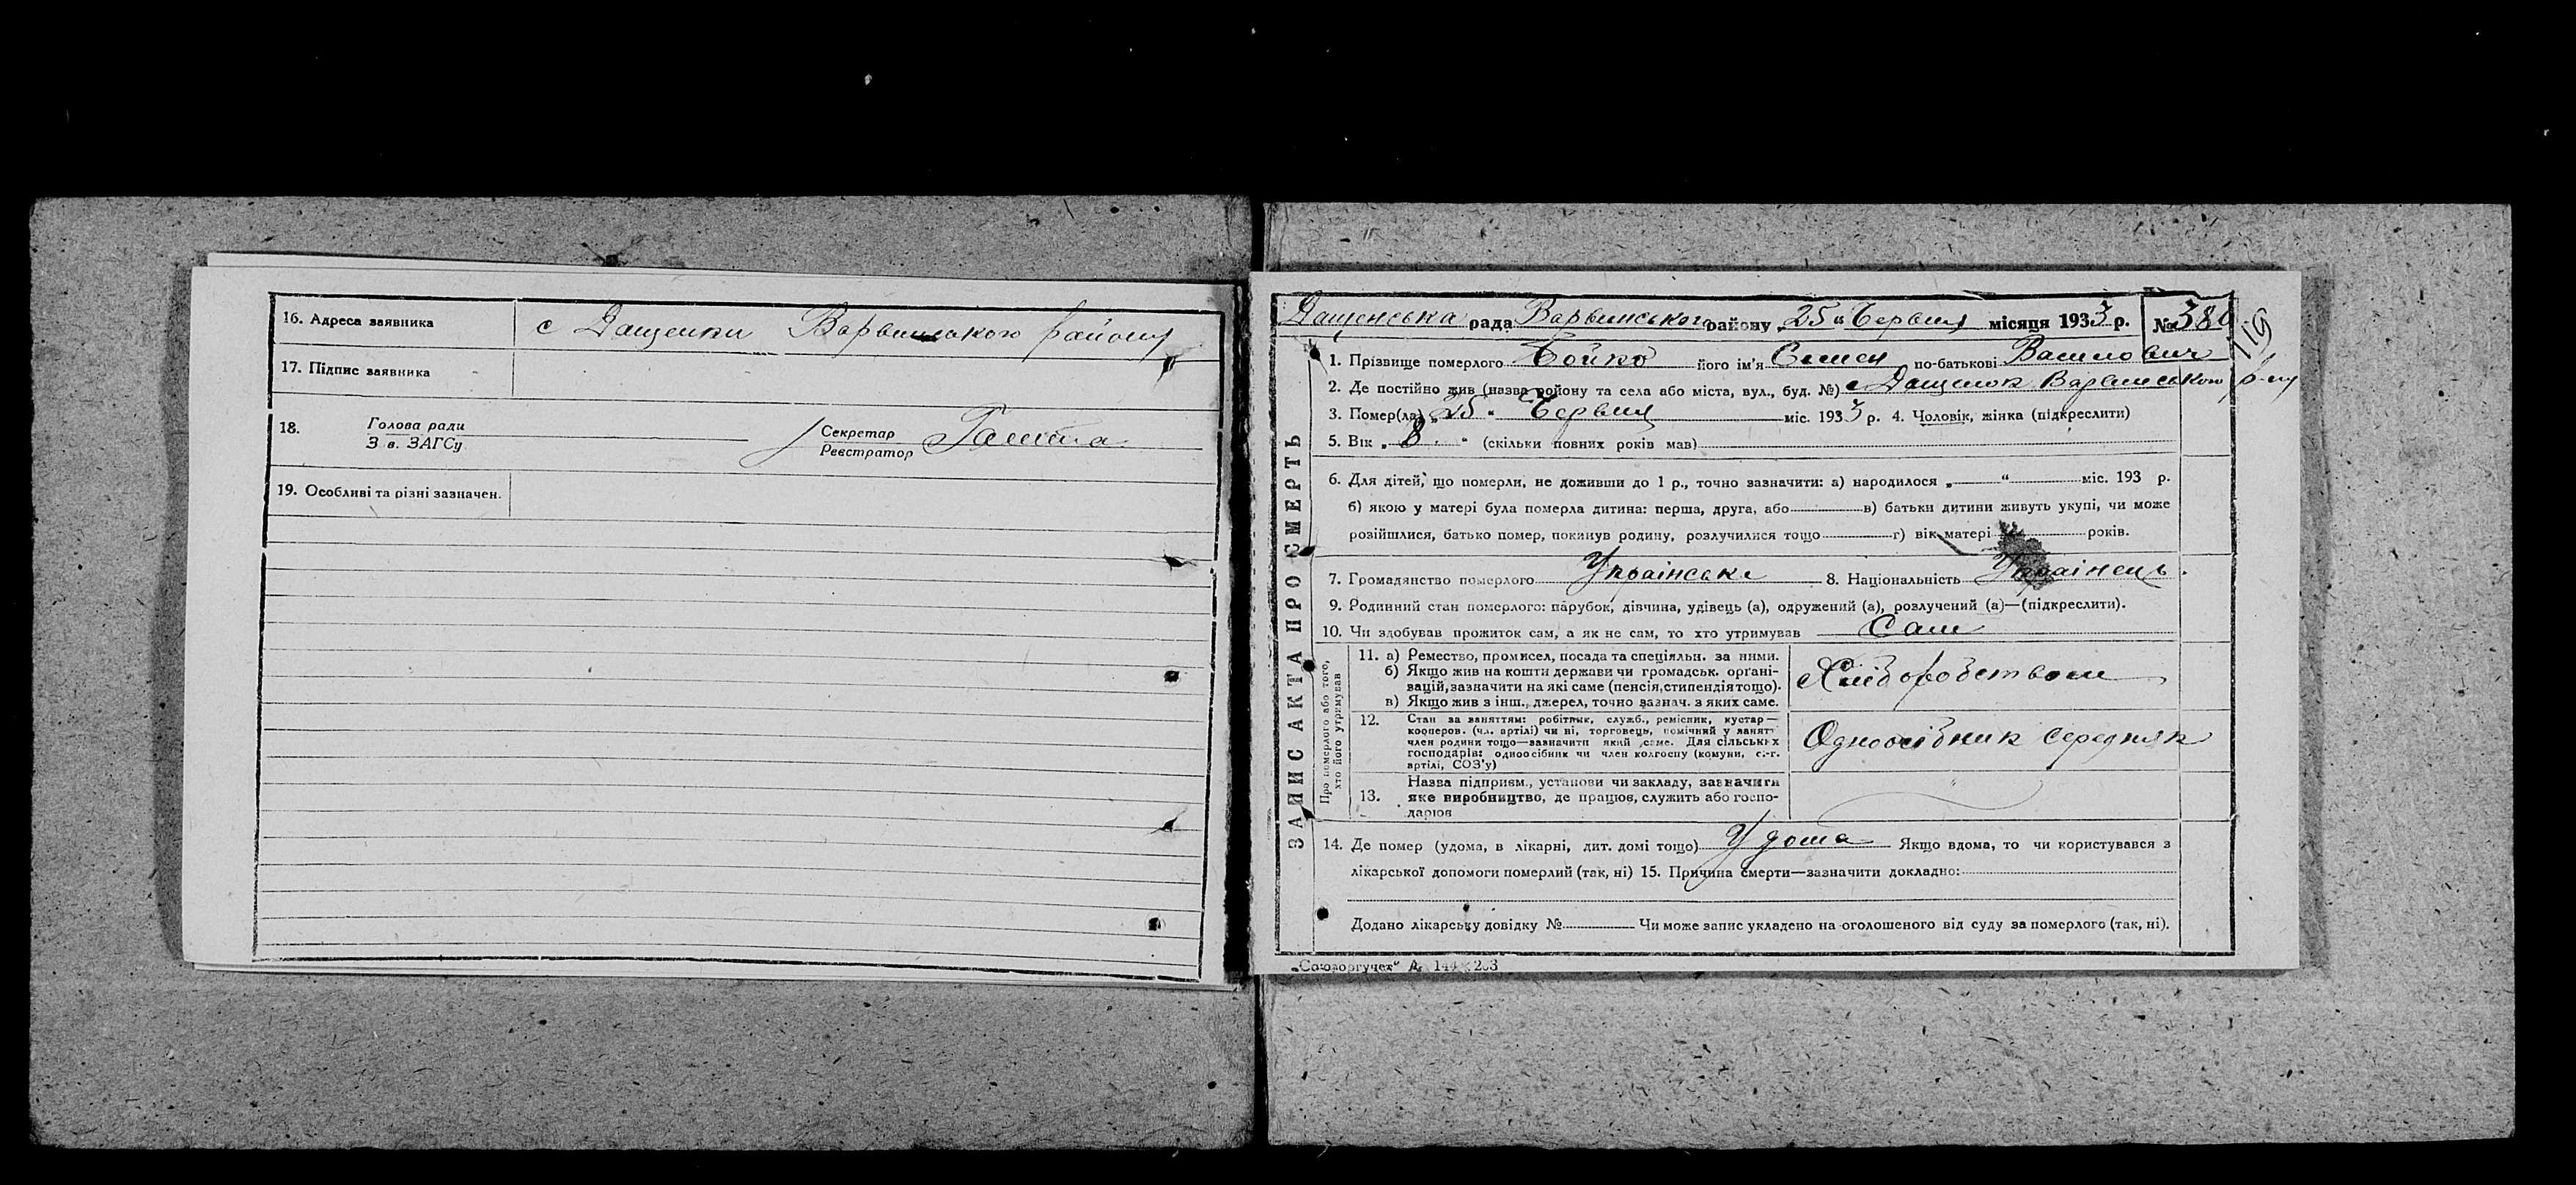 16. Адреса заявника с Дащенки Варвинського району
17. Підпис заявника
18. Голова ради
З в. ЗАГСу
Секретар
Реєстратор
19. Особливі та різні зазначен.
ЗАПИС АКТА ПРО СМЕРТЬ
Дащенська рада Варвинського району „25“ Червня місяця 1933 р. №
119
1. Прізвище померлого Бойко його ім'я Семен по-батькові Василович
2. Де постійно жив (назва району та села або міста, вул., буд. №) с Дащенок Варвинського р-ну
3. Помер(ла) „25“ Червня міс. 1933 р. 4. Чоловік, жінка (підкреслити)
5. Вік „8“ (скільки повних років мав)
6. Для дітей, що померли, не доживши до 1 р., точно зазначити: а) народилося „ “ міс. 193 р.
б) якою у матері була померла дитина: перша, друга, або в) батьки дитини живуть укупі, чи може
розійшлися, батько помер, покинув родину, розлучилися тощо г) вік матері років.
7. Громадянство померлого Українське 8. Національність Українець.
9. Родинний стан померлого: парубок, дівчина, удівець (а), одружений (а), розлучений (а)—(підкреслити).
10. Чи здобував прожиток сам, а як не сам, то хто утримував Сам
Про померлого або того,
хто його утримував
11. а) Ремество, промисел, посада та спеціяльн. за ними.
б) Якщо жив на кошти держави чи громадськ. організацій, зазначити на які саме (пенсія, стипендія тощо).
в) Якщо жив з інш. джерел, точно зазнач. з яких саме.
Хліборобством
12. Стан за заняттям: робітник, служб., ремісник, кустар—
кооперов. (чл. артілі) чи ні, торговець, помічний у занятт
член родини тощо—зазначити який саме. Для сільських
господарів: одноосібник чи член колгоспу (комуни, с.-г.
артілі, СОЗ'у)
Одноосібник середняк
Назва підприєм., установи чи закладу, зазначити
13. яке виробництво, де працює, служить або госпо-
дарює
14. Де помер (удома, в лікарні, дит. домі тощо) У дома Якщо вдома, то чи користувався з
лікарської допомоги померлий (так, ні) 15. Причина смерти—зазначити докладно:
Додано лікарську довідку № Чи може запис укладено на оголошеного від суду за померлого (так, ні).
„Союзоргучет“